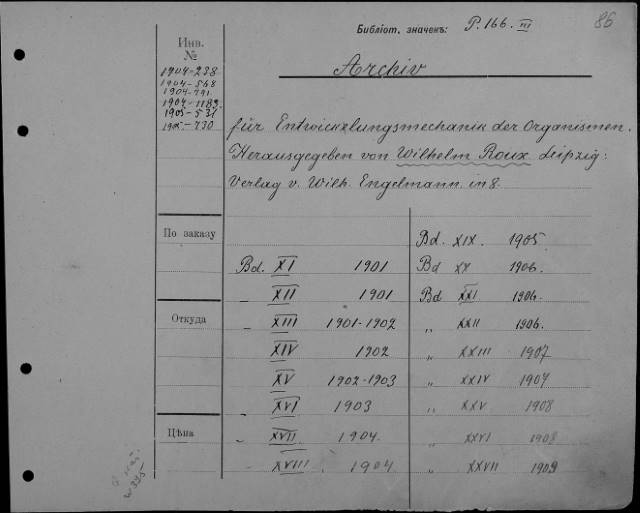 Библіот. значекъ: P. 166. III
86
Инв.
№
1904-238
1904-568
1904-791
1904-1189
1905-531
190-730
Archiv
für Entwicklungsmechanik der Organismen.
Herausgegeben von Wilhelm Roux. Leipzig:
Verlag v. Wilh. Engelmann. in 8.
По заказу
Откуда
Цѣна
Bd. XI 1901
„ XII 1901
„ XIII 1901-1902
XIV 1902
„ XV 1902-1903
„ XVI 1903
„ XVII 1904.
„ XVIII 1904
Bd. XIX. 1905.
Bd XX 1906.
Bd XXI 1906.
„ XXII 1906.
„ XXIII 1907
„ XXIV 1907
„ XXV 1908
„ XXVI 1908
„ XXVII 1909